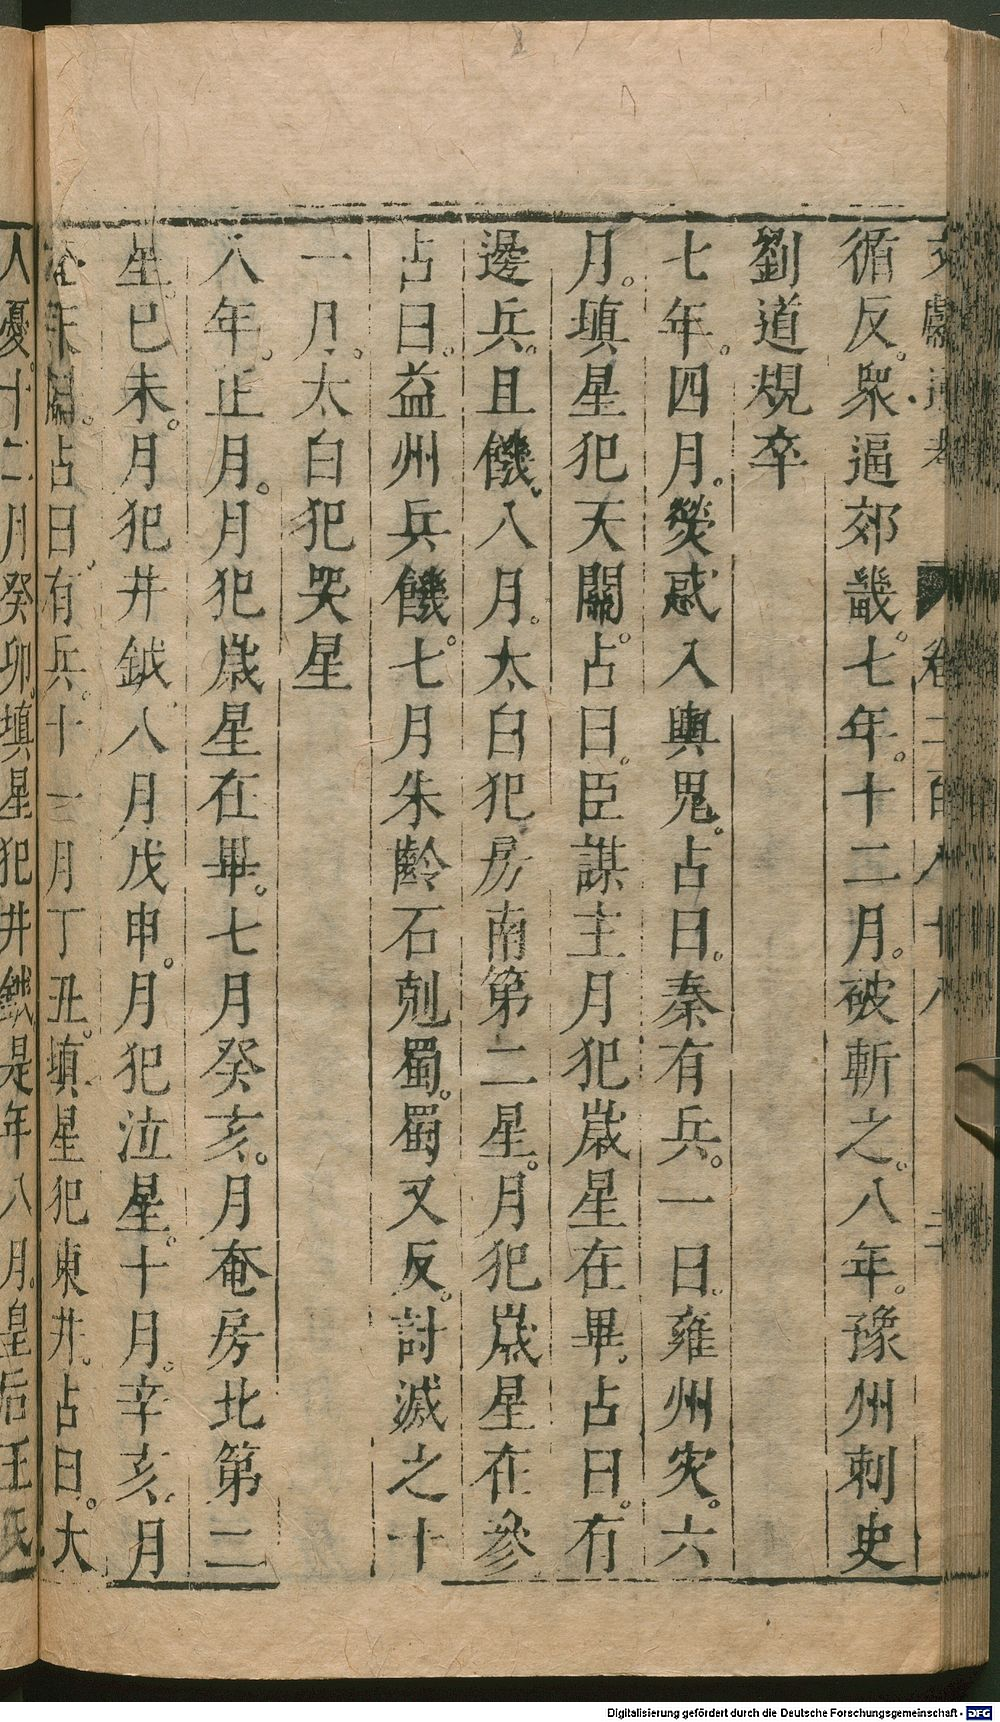 文獻通考 卷二百八十八
循反。衆逼郊畿。七年。十二月。被斬之。八年。豫州刺史
劉道規卒
七年。四月。熒惑入輿鬼。占曰。秦有兵。一曰。雍州灾。六
月。填星犯天關。占曰。臣謀主月犯歲星在畢。占曰。有
邊兵。且饑。八月。太白犯房南第二星。月犯歲星在參
占曰。益州兵饑。七月朱齡石剋蜀。蜀又反。討滅之十
一月。太白犯哭星
八年。正月。月犯歲星在畢。七月癸亥。月奄房北第二
星。巳未。月犯井鉞。八月戊申。月犯泣星。十月。辛亥。月
奄天關。占曰。有兵。十一月丁丑。填星犯東井。占曰。大
人憂。十二月癸卯。填星犯井鉞是年八月。皇后王氏
Digitalisierung gefördert durch die Deutsche Forschungsgemeinschaft - DFG